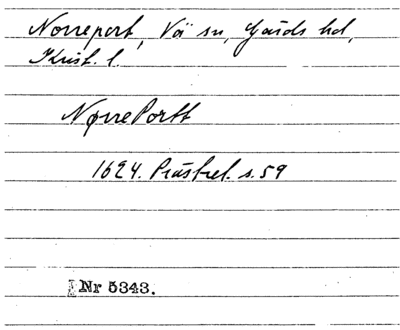 Norreport, Vä sn, Gärds hd,
Krist. l.
NørrePortt
1624. Prästrel. s. 59
Nr 5343.